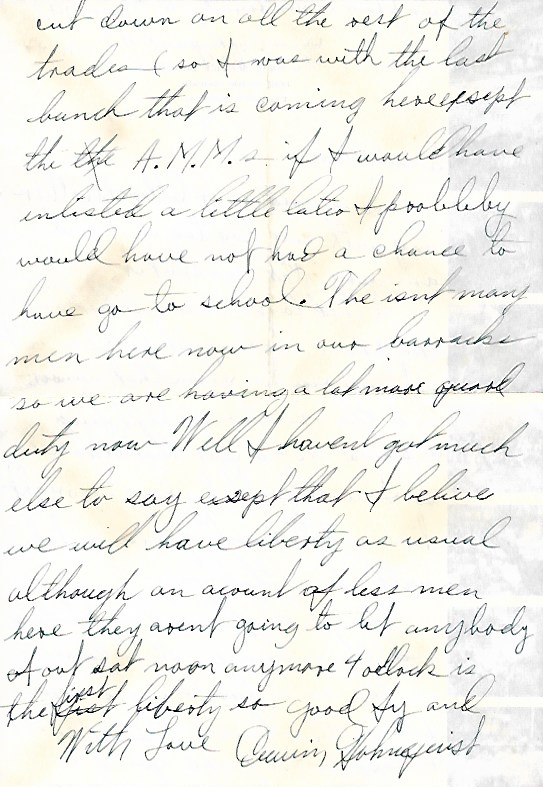 cut down on all the rest of the
trades (so I was with the last
bunch that is coming here exsept
the the A.M.M.s if I would have
inlisted a little later I probleby
would have not had a chance to
have go to school. The isnt many
men here now in our barracks
so we are having a lot more guard
duty now Well I havent got much
else to say exsept that I belive
we will have liberty as usual
although on acount of less men
here they arent going to let anybody
out sat noon anymore 4 oclock is
the first liberty so good by and
With Love Holmquist